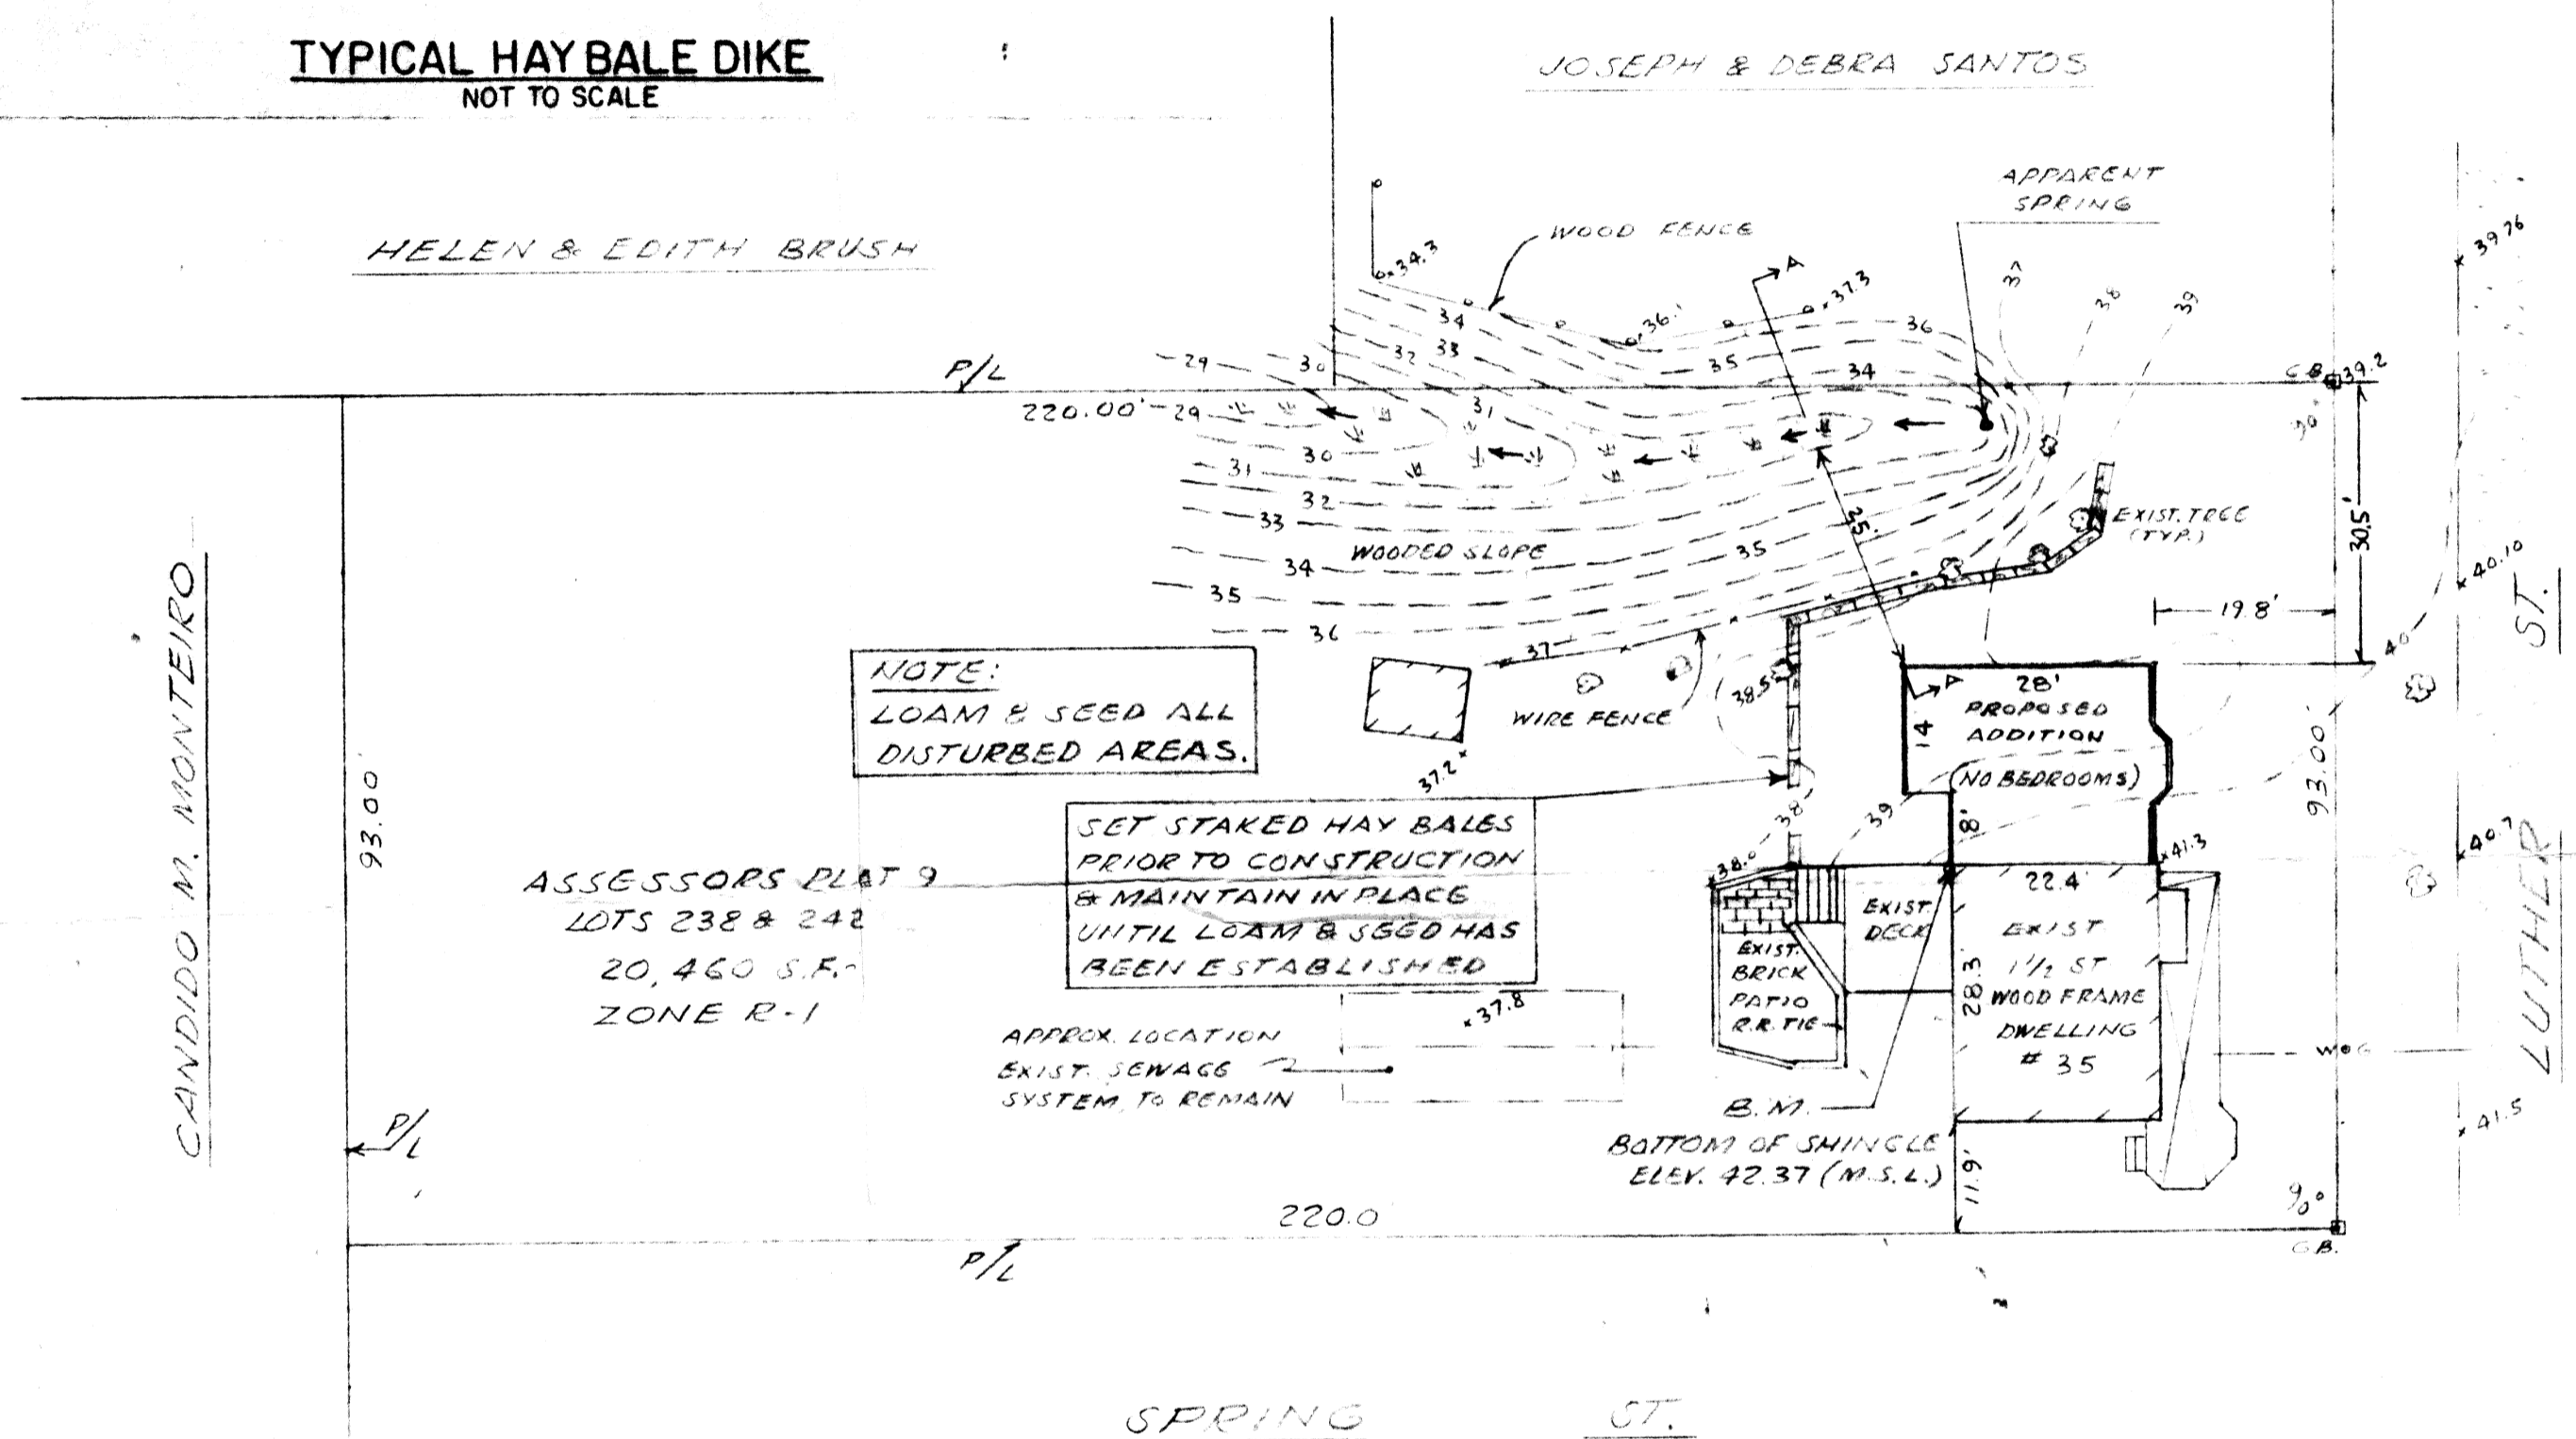 TYPICAL HAY BALE DIKE
NOT TO SCALE
JOSEPH & DEBRA SANTOS
HELEN & EDITH BRUSH
APPARENT
SPRING
WOOD FENCE
A
34.3
36.1
37.3
37
38
39
39.76
34
33
32
30
29
36
35
34
P/L
C.B.
39.2
90°
220.00'
29
31
30
31
32
33
34
35
36
37
35
WOODED SLOPE
35'
EXIST. TREE
(TYP.)
30.5'
40.10
19.8'
40
ST.
CANDIDO M. MONTEIRO
93.00'
NOTE:
LOAM & SEED ALL
DISTURBED AREAS.
WIRE FENCE
38.5
37.2
A
28'
14
PROPOSED
ADDITION
(NO BEDROOMS)
8'
93.00'
SET STAKED HAY BALES
PRIOR TO CONSTRUCTION
& MAINTAIN IN PLACE
UNTIL LOAM & SEED HAS
BEEN ESTABLISHED
38
39
38.0
41.3
40.7
ASSESSORS PLAT 9
LOTS 238 & 242
20,460 S.F.-
ZONE R-1
EXIST.
DECK
EXIST.
BRICK
PATIO
R.R. TIE
22.4'
28.3'
EXIST.
1 1/2 ST.
WOOD FRAME
DWELLING
# 35
LUTHER
W&G
37.8
APPROX. LOCATION
EXIST. SEWAGE
SYSTEM, TO REMAIN
B.M.
BOTTOM OF SHINGLE
ELEV. 42.37 (M.S.L.)
11.9'
41.5
P/L
220.0
90°
C.B.
P/L
SPRING ST.